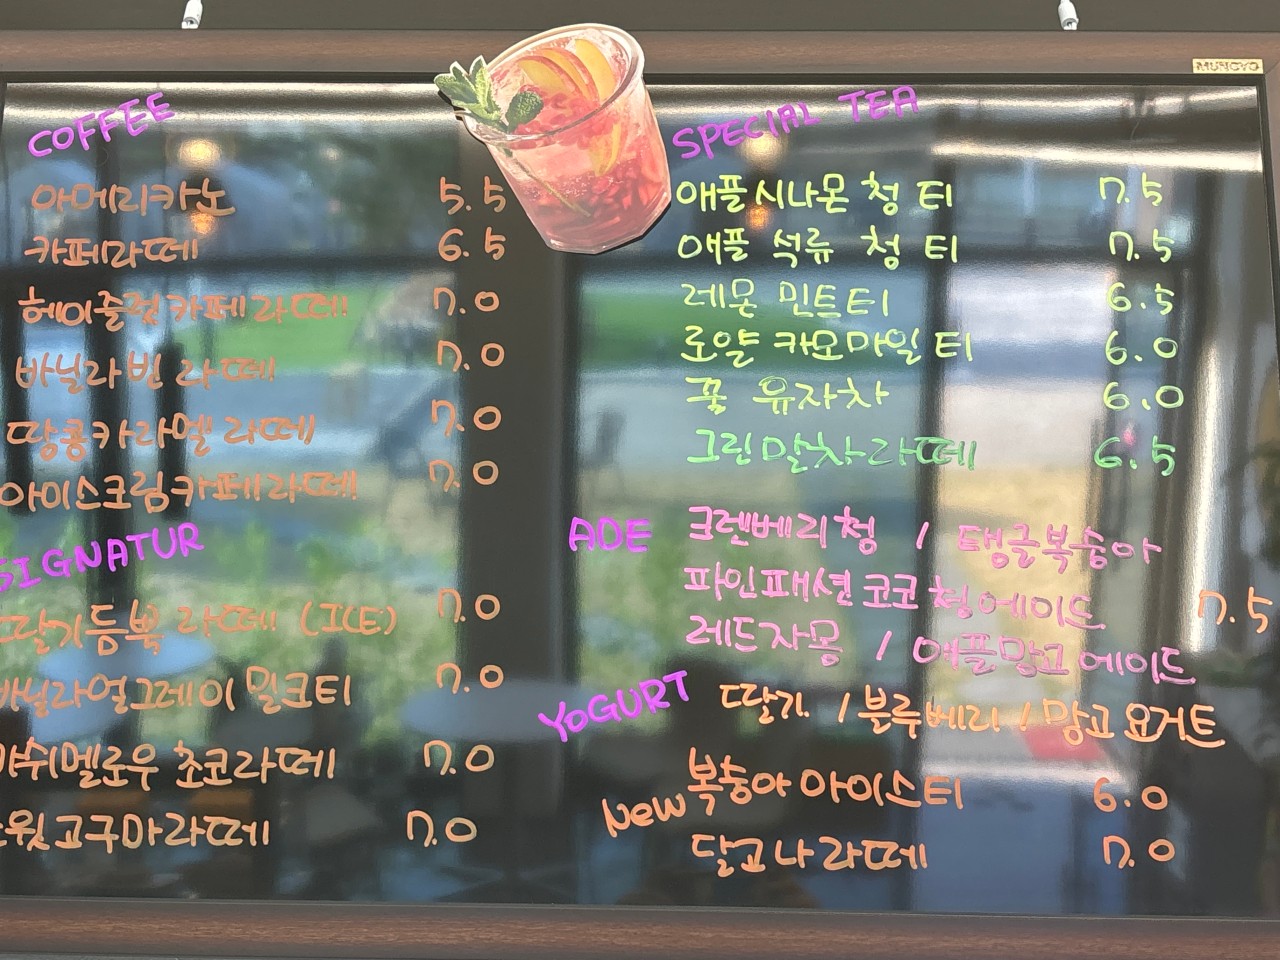 MUNGYO
COFFEE
아메리카노 5.5
카페라떼 6.5
헤이즐럿카페라떼 7.0
바닐라빈 라떼 7.0
땅콩카라멜 라떼 7.0
아이스크림카페라떼 7.0
SIGNATUR
딸기듬뿍 라떼 (ICE) 7.0
바닐라얼그레이 밀크티 7.0
마쉬멜로우 초코라떼 7.0
고구마라떼 7.0
SPECIAL TEA
애플시나몬 청 티 7.5
애플 석류 청 티 7.5
레몬 민트티 6.5
로얄 카모마일 티 6.0
꿀 유자차 6.0
그린말차라떼 6.5
ADE 크렌베리청 / 탱글복숭아
파인패션코코청에이드 7.5
레드자몽 / 애플망고에이드
YOGURT 딸기 / 블루베리 / 망고요거트
New 복숭아아이스티 6.0
달고나라떼 7.0